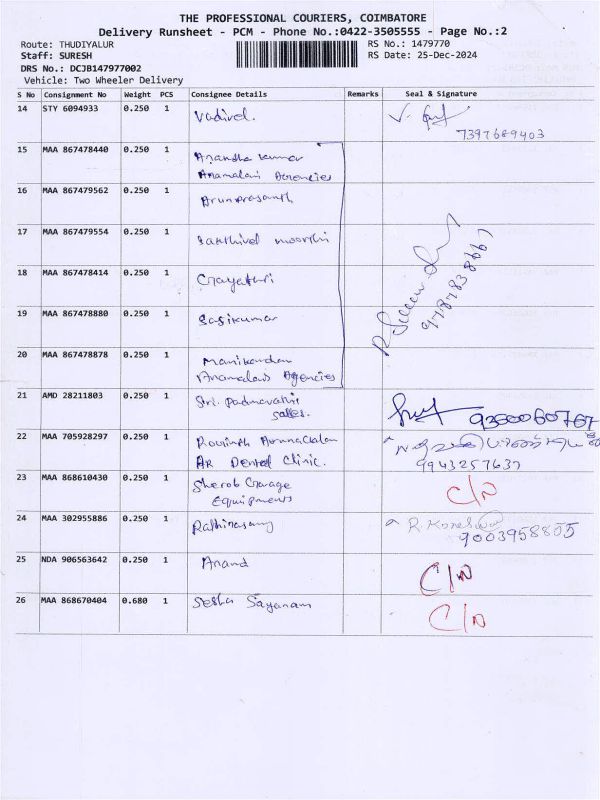 THE PROFESSIONAL COURIERS, COIMBATORE
Delivery Runsheet - PCM - Phone No.:0422-3505555 - Page No.:2
Route: THUDIYALUR
RS No.: 1479770
Staff: SURESH
RS Date: 25-Dec-2024
DRS No.: DCJB147977002
Vehicle: Two Wheeler Delivery
S No Consignment No Weight PCS Consignee Details Remarks Seal & Signature
14 STY 6094933 0.250 1 Vadivel.
7397689403
15 MAA 867478440 0.250 1 Anandha kumar
Anamalais Agencies
16 MAA 867479562 0.250 1 Arunprasanth
17 MAA 867479554 0.250 1 Sakthivel moorthi
18 MAA 867478414 0.250 1 Gayathri
19 MAA 867478880 0.250 1 Sasikumar
9787838667
20 MAA 867478878 0.250 1 Manikandan
Anamalais Agencies
21 AMD 28211803 0.250 1 Sri. Padmavathi
Sales.
9360060767
22 MAA 705928297 0.250 1 Ravinth Arunachalam
AR Dental Clinic.
9943257637
23 MAA 868610430 0.250 1 Sherob Garage
Equipments
C/N
24 MAA 302955886 0.250 1 Rathinasamy
9003958805
25 NDA 906563642 0.250 1 Anand
C/N
26 MAA 868670404 0.680 1 Sesha Sayanam
C/N